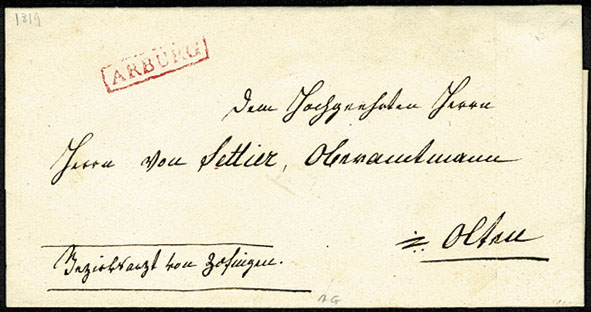 1819
ARBURG
Dem Hochgeehrten Herrn
Herrn von Settier, Oberamtmann
in Olten
Bezirksarzt von Zofingen.
AG